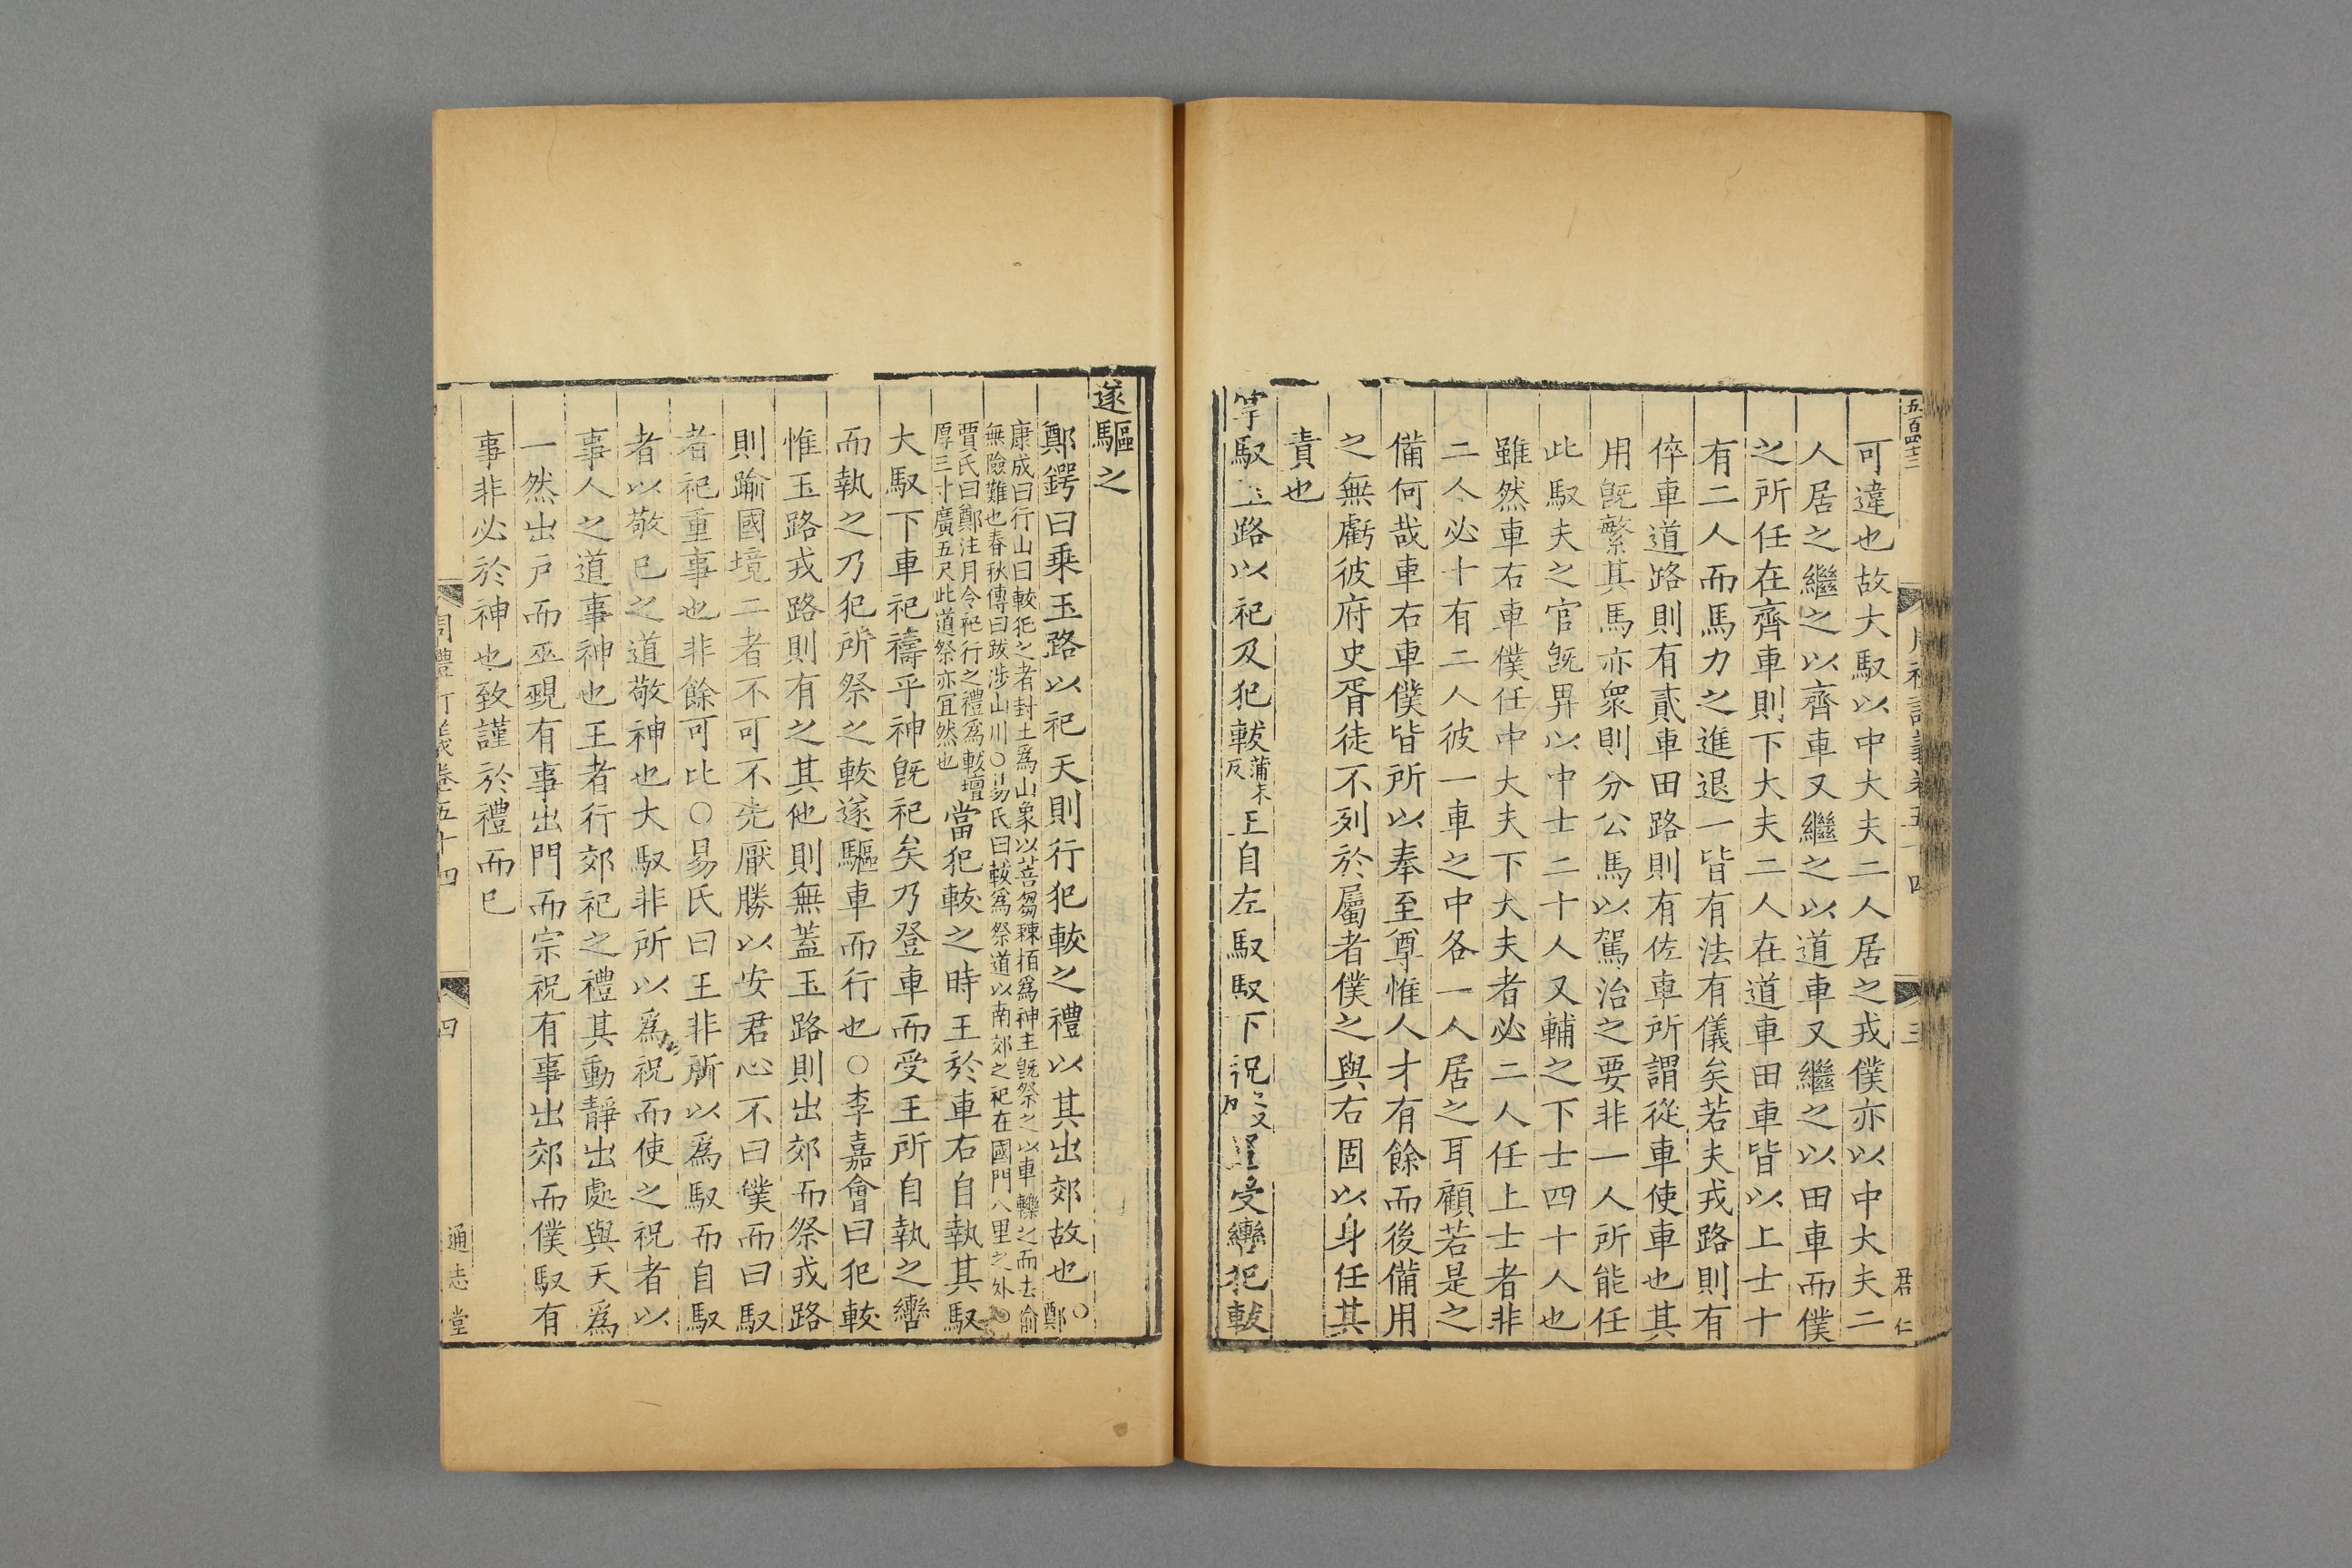 五百四十二
君仁
可違也故大馭以中大夫二人居之戎僕亦以中大夫二
人居之繼之以齊車又繼之以道車又繼之以田車而僕
之所任在齊車則下大夫二人在道車田車皆以上士十
有二人而馬力之進退一皆有法有儀矣若夫戎路則有
倅車道路則有貳車田路則有佐車所謂從車使車也其
用旣繁其馬亦衆則分公馬以駕治之要非一人所能任
此馭夫之官旣畀以中士二十人又輔之下士四十人也
雖然車右車僕任中大夫下大夫者必二人任上士者非
二人必十有二人彼一車之中各一人居之耳顧若是之
備何哉車右車僕皆所以奉至尊惟人才有餘而後備用
之無虧彼府史胥徒不列於屬者僕之與右固以身任其
責也
掌馭玉路以祀及犯軷蒲末反王自左馭馭下祝登受轡犯軷
遂驅之
鄭鍔曰乗玉路以祀天則行犯軷之禮以其出郊故也○鄭
康成曰行山曰軷犯之者封土爲山象以菩芻棘栢爲神主旣祭之以車轢之而去喻
無險難也春秋傳曰跋涉山川○易氏曰軷爲祭道以南郊之祀在國門八里之外○
賈氏曰鄭注月令祀行之禮爲軷壇
厚三寸廣五尺此道祭亦宜然也
當犯軷之時王於車右自執其馭
大馭下車祀禱乎神旣祀矣乃登車而受王所自執之轡
而執之乃犯所祭之軷遂驅車而行也○李嘉會曰犯軷
惟玉路戎路則有之其他則無蓋玉路則出郊而祭戎路
則踰國境二者不可不先厭勝以安君心不曰僕而曰馭
者祀重事也非餘可比○易氏曰王非所以爲馭而自馭
者以敬已之道敬神也大馭非所以爲祝而使之祝者以
事人之道事神也王者行郊祀之禮其動靜出處與天爲
一然出戸而巫覡有事出門而宗祝有事出郊而僕馭有
事非必於神也致謹於禮而已
周禮訂義卷五十四
四
通志堂